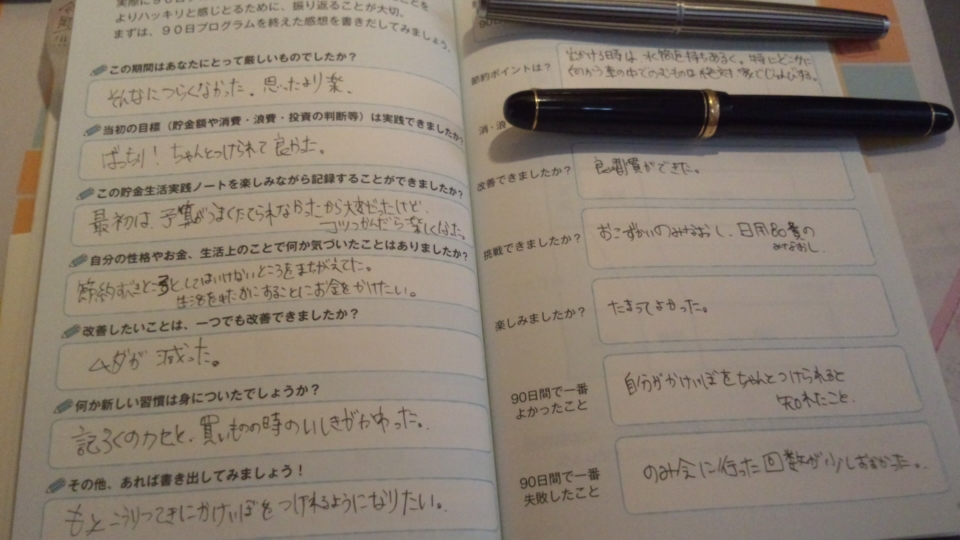 実際に90日プ
よりハッキリと感じとるために、振り返ることが大切。
まずは、90日プログラムを終えた感想を書きだしてみましょう。
この期間はあなたにとって厳しいものでしたか?
そんなにつらくなかった。思ったより楽。
当初の目標(貯金額や消費・浪費・投資の判断等)は実践できましたか?
ばっちり!ちゃんとつけられて良かった。
この貯金生活実践ノートを楽しみながら記録することができましたか?
最初は、予算がうまくたてられなかったから大変だったけど、
コツつかんだら楽しくなった。
自分の性格やお金、生活上のことで何か気づいたことはありましたか?
節約すべきところとしてはいけないところをまちがえてた。
生活をゆたかにすることにお金をかけたい。
改善したいことは、一つでも改善できましたか?
ムダが減った。
何か新しい習慣は身についたでしょうか?
記ろくのクセと、買いものの時のいしきがかわった。
その他、あれば書き出してみましょう!
もっとこうりつてきにかけいぼをつけれるようになりたい。
90日
節約ポイントは?
出かける時は水筒を持ちあるく。特にどこかに
消・浪
改善できましたか?
良い習慣ができた。
挑戦できましたか?
おこずかいのみなおし、日用品費の
みなおし。
楽しみましたか?
たまってよかった。
90日間で一番
よかったこと
自分がかけいぼをちゃんとつけられると
知れたこと。
90日間で一番
失敗したこと
のみ会に行った回数が少しおおかった。